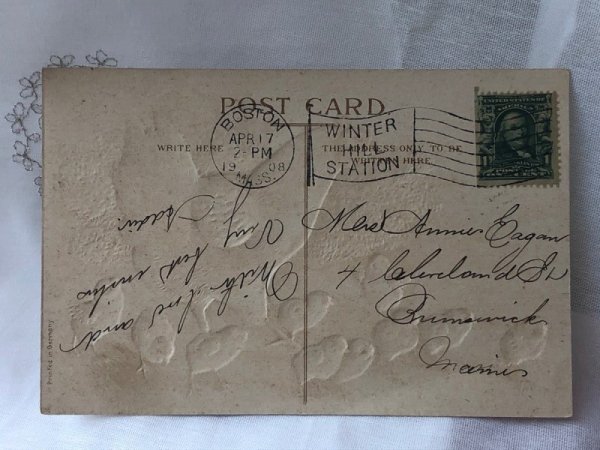 POST CARD.
BOSTON
APR 17
2-PM
1908
MASS.
WINTER
HILL
STATION
WRITE HERE
THE ADDRESS ONLY TO BE
WRITTEN HERE.
With love and
Very best wishes
Sadie.
Mrs Annie Eagan
4 Cleveland St
Brunswick
Maine
Printed in Germany